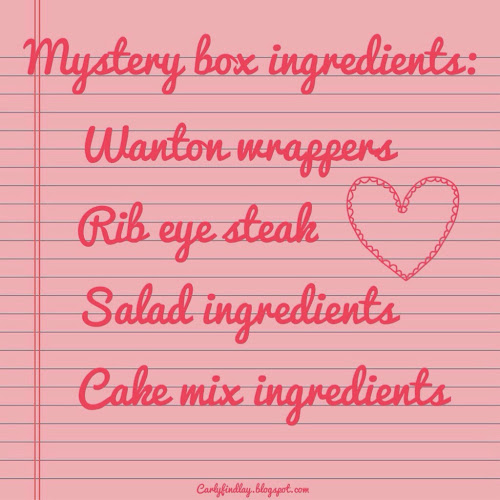 Mystery box ingredients:
Wanton wrappers
Rib eye steak
Salad ingredients
Cake mix ingredients
Carlyfindlay.blogspot.com